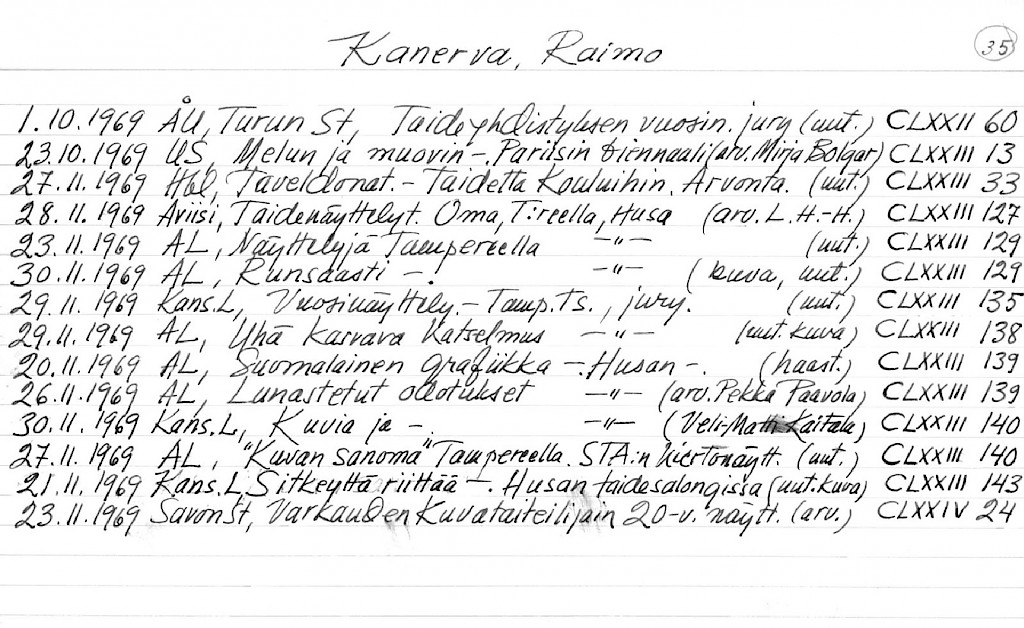 Kanerva, Raimo
35
1.10.1969 ÅU, Turun St, Taideyhdistyksen vuosin. jury (uut.) CLXXII 60
23.10.1969 US, Melun ja muovin -. Pariisin biennaali (arv. Mirja Bolgar) CLXXIII 13
27.11.1969 Hbl, Taveldonat. - Taidetta Kouluihin. Arvonta. (uut.) CLXXIII 33
28.11.1969 Aviisi, Taidenäyttelyt. Oma, T:reella, Husa (arv. L.H.-H.) CLXXIII 127
23.11.1969 AL, Näyttelyjä Tampereella -"- (uut.) CLXXIII 129
30.11.1969 AL, Runsaasti -. -"- (kuva, uut.) CLXXIII 129
29.11.1969 Kans.L, Vuosinäyttely. - Tamp.ts., jury. (uut.) CLXXIII 135
29.11.1969 AL, Yhä Kasvava Katselmus -"- (uut. kuva) CLXXIII 138
20.11.1969 AL, Suomalainen grafiikka -. Husan -. (haast.) CLXXIII 139
26.11.1969 AL, Lunastetut odotukset -"- (arv. Pekka Paavola) CLXXIII 139
30.11.1969 Kans.L, Kuvia ja -. -"- (Veli-Matti Kaitala) CLXXIII 140
27.11.1969 AL, "Kuvan sanoma" Tampereella. STA:n kiertonäytt. (uut.) CLXXIII 140
21.11.1969 Kans.L, Sitkeyttä riittää -. Husan taidesalongissa (uut. kuva) CLXXIII 143
23.11.1969 SavonSt, Varkauden Kuvataiteilijain 20-v. näytt. (arv.) CLXXIV 24